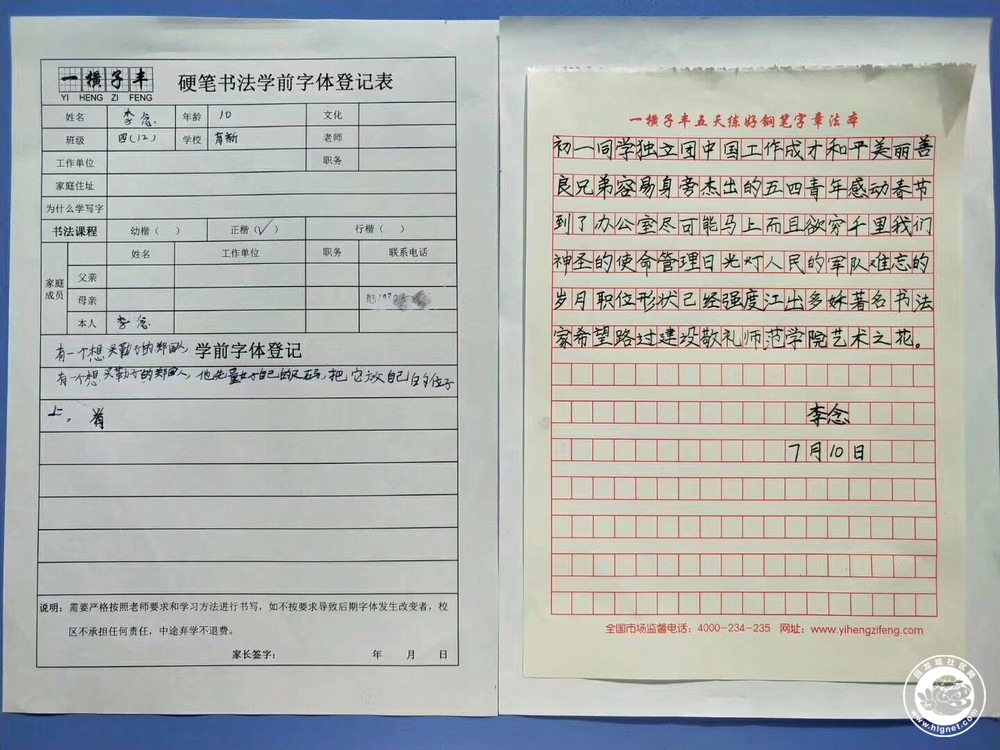 一横子丰
YI HENG ZI FENG
硬笔书法学前字体登记表
姓名 李念 年龄 10 文化
班级 四(12) 学校 育新 老师
工作单位 职务
家庭住址
为什么学写字
书法课程 幼楷（ ） 正楷（√） 行楷（ ）
家庭成员 姓名 工作单位 职务 联系电话
父亲
母亲
本人 李念
有一个想买鞋子的郑国人,
学前字体登记
有一个想买鞋子的郑国人，他先量好自己的尺码，把它放自己的位子
上。
说明：需要严格按照老师要求和学习方法进行书写，如不按要求导致后期字体发生改变者，校
区不承担任何责任，中途弃学不退费。
家长签字： 年 月 日
一横子丰五天练好钢笔字章法本
初一同学独立团中国工作成才和平美丽善
良兄弟容易身旁杰出的五四青年感动春节
到了办公室尽可能马上而且欲穷千里我们
神圣的使命管理日光灯人民的军队难忘的
岁月职位形状己经强度江出多姝著名书法
家希望路过建设敬礼师范学院艺术之花。
李念
7月10日
全国市场监督电话：4000-234-235 网址：www.yihengzifeng.com
回龙观社区网
www.hlgnet.com